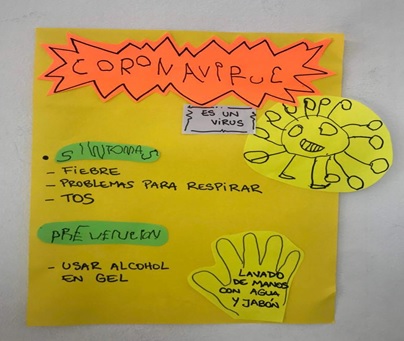 CORONAVIRUE
ES UN
VIRUS
• SYNTOMAS
- FIEBRE
- PROBLEMAS PARA RESPIRAR
- TOS
PREVENCION
- USAR ALCOHOL
EN GEL
LAVADO
DE MANOS
CON AGUA
Y JABÓN